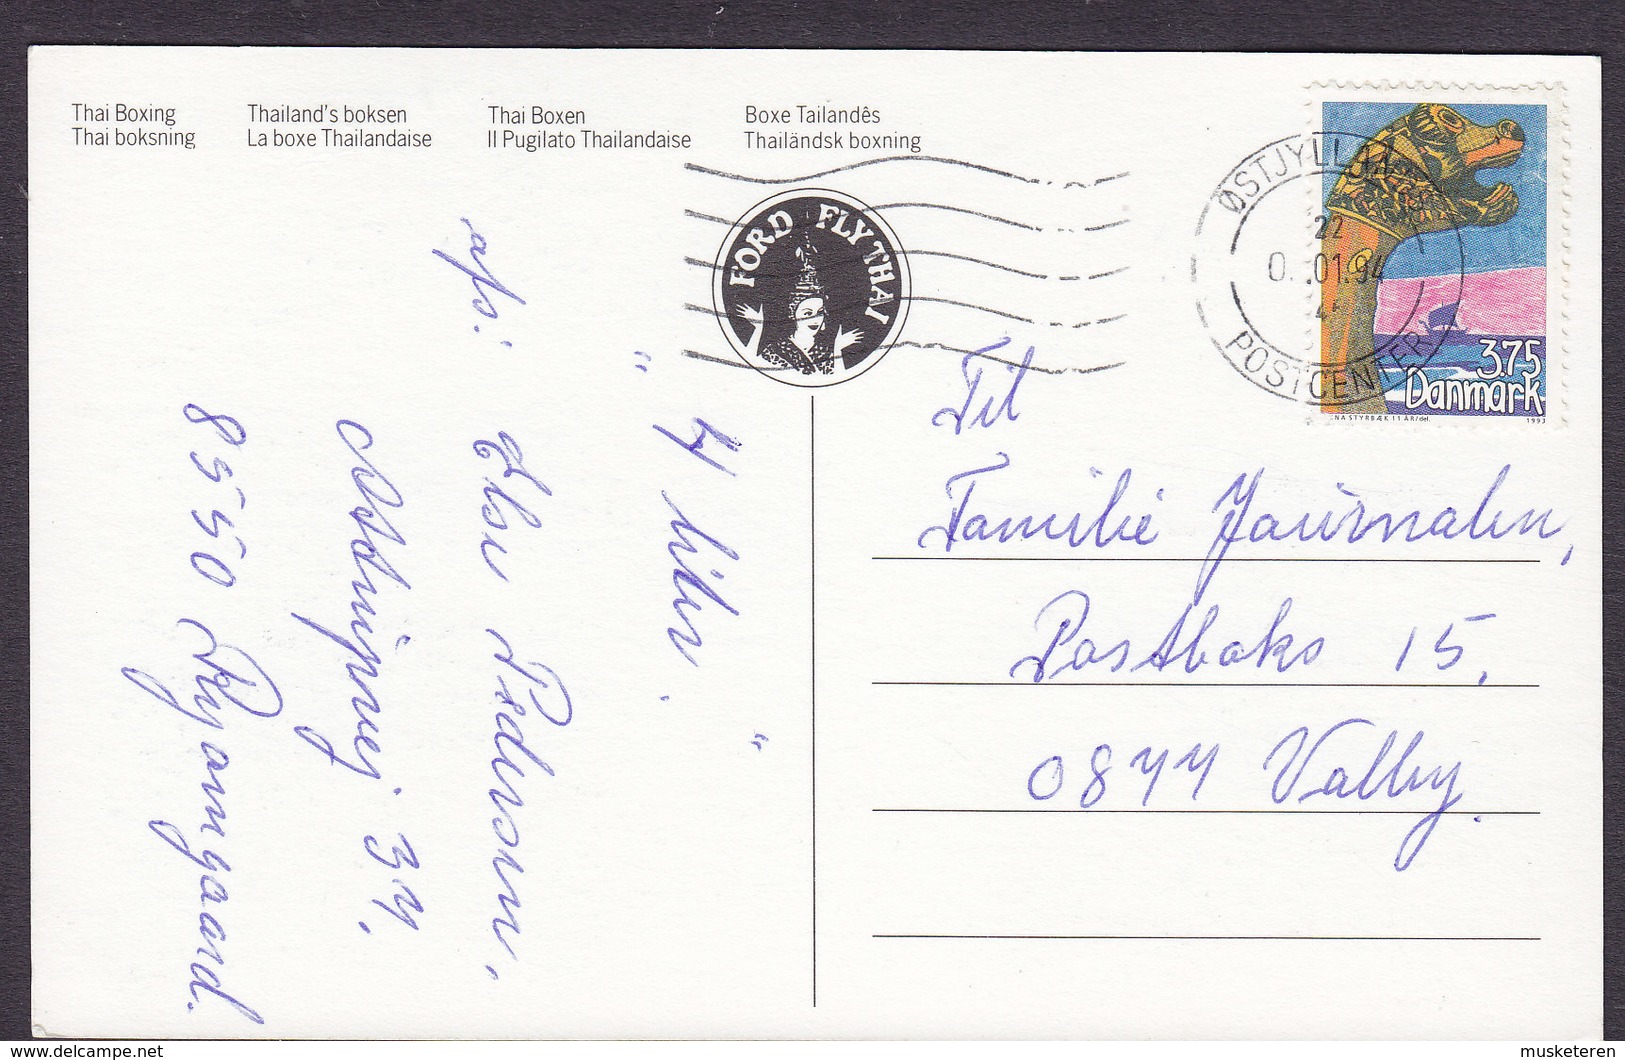 Thai Boxing
Thai boksning
Thailand's boksen
La boxe Thailandaise
Thai Boxen
Il Pugilato Thailandaise
Boxe Tailandês
Thailändsk boxning
FORD FLY THAI
ØSTJYLLAN
22
0 .01.94
POSTCENTER
3.75
Danmark
NA STYRBÆK 11 ÅR/del.
1993
Til
Familie Journalen,
Postboks 15,
0844 Valby.
"4 biler."
afs:
Else Pedersen,
34.
8550 Ryomgaard.
musketeren
delcampe.net